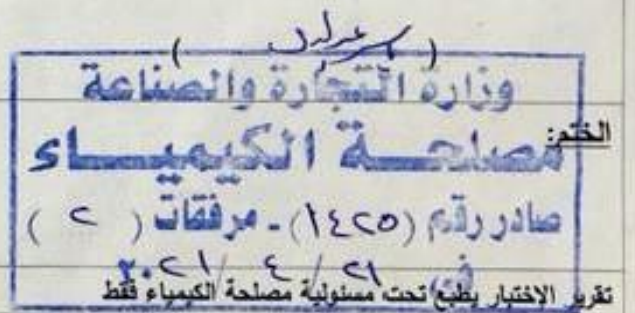 وزارة التجارة والصناعة
الختم:
مصلحة الكيمياء
صادر رقم (١٤٢٥) - مرفقات (٢)
في ٢١ / ٤ / ٢٠٢١
تقرير الإختبار يطبع تحت مسئولية مصلحة الكيمياء فقط